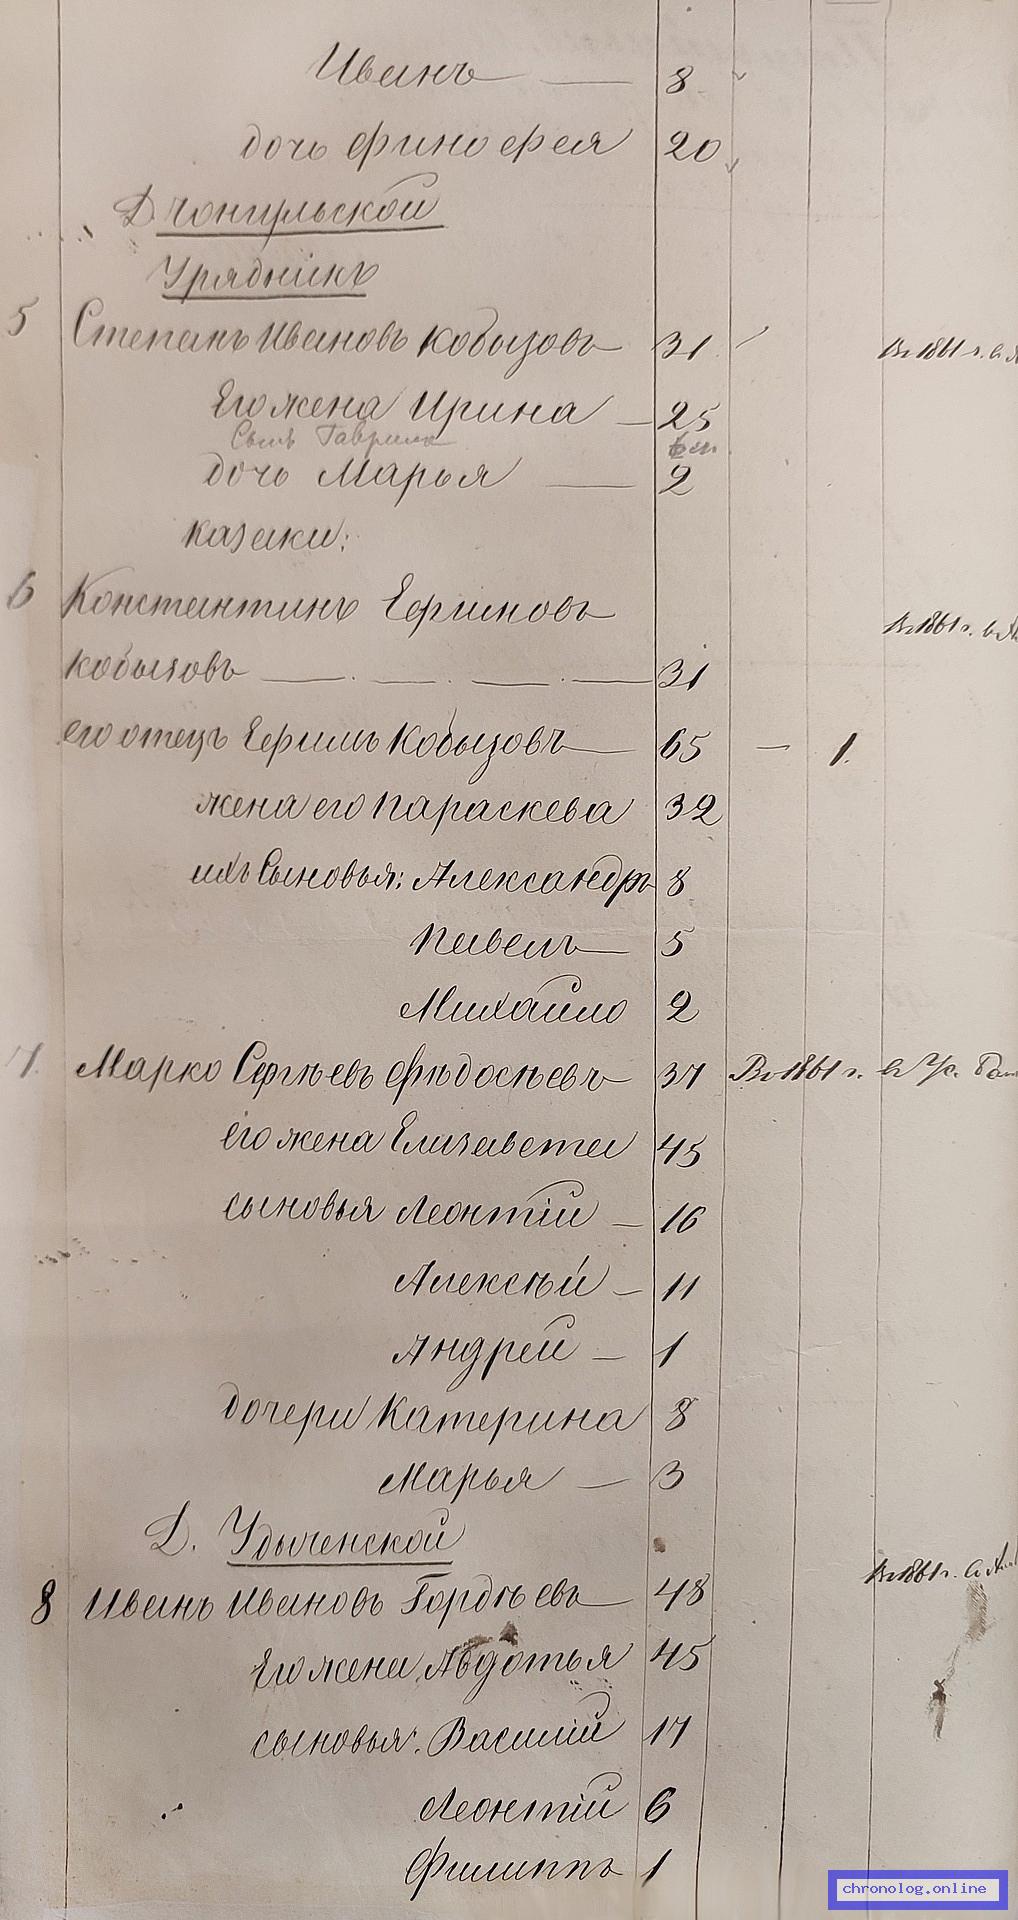 Иванъ — 8
дочь Финофея 20
Д Чонгульской
Урядникъ
5 Степанъ Ивановъ Кобызовъ 31 Въ 1861 г. въ
Его жена Ирина — 25
Сынъ Гаврило 6 м.
дочь Марья — 2
казаки:
6 Константинъ Ефимовъ Въ 1861 г. въ
Кобызовъ — — — — 31
его отецъ Ефимъ Кобызовъ — 65 — 1.
жена его Параскева 32
ихъ Сыновья: Александръ 8
Павелъ — 5
Михайло 2
7. Марко Сергѣевъ Фѣдосѣевъ 37 Въ 1861 г. въ
его жена Елизавета 45
сыновья Леонтій — 16
Алексѣй — 11
Андрей — 1
дочери Катерина 8
Марья — 3
Д. Удыченской
8 Иванъ Ивановъ Гордѣевъ — 48 Въ 1861 г. въ
Его жена Авдотья 45
сыновья: Василій 17
Леонтій 6
Филиппъ 1
chronolog.online